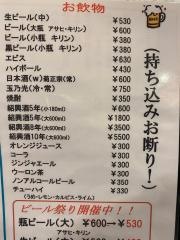 お飲物
生ビール(中) ¥530
ビール(大瓶 アサヒ・キリン) ¥600
ビール(小瓶 キリン) ¥380
黒ビール(小瓶 キリン) ¥380
エビス ¥630
ハイボール ¥430
日本酒(w)菊正宗(常) ¥530
玉乃光(冷・常) ¥750
焼酎 ¥350
紹興酒5年(小180ml) ¥600
紹興酒5年(大600ml) ¥1800
紹興酒8年(大600ml) ¥3500
紹興酒10年(大600ml) ¥5500
オレンジジュース ¥300
コーラ ¥300
ジンジャエール ¥300
ウーロン茶 ¥300
ノンアルコールビール ¥350
チューハイ ¥330
(うめ・レモン・カルピス・ライム)
(持ち込みお断り!)
ビール祭り開催中!!
瓶ビール(大) ¥600→¥530
アサヒ・キリン